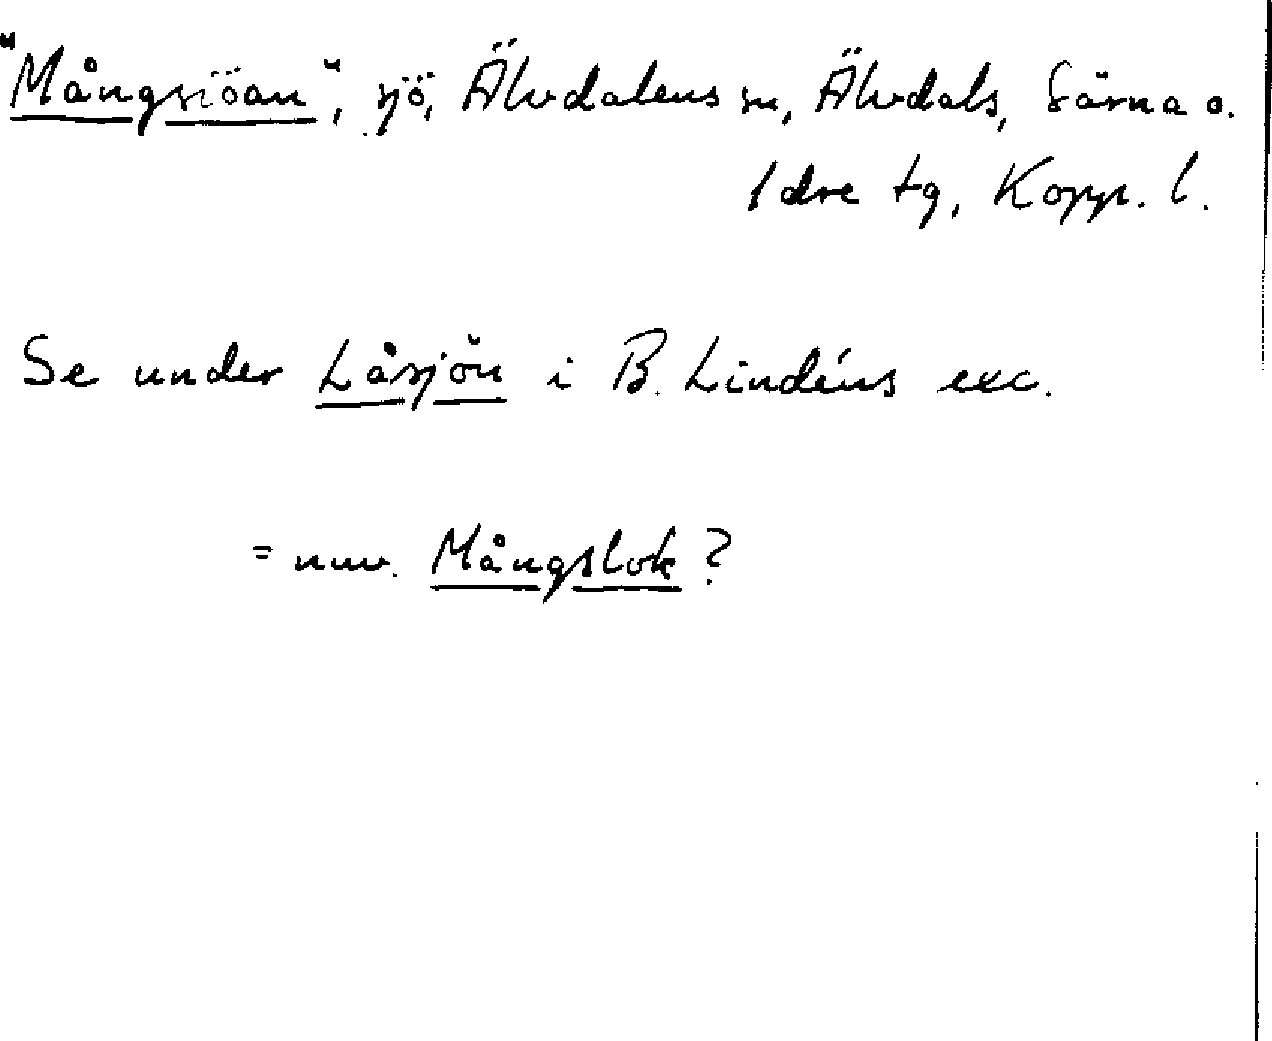 "Mångsiöan", sjö, Älvdalens sn, Älvdals, Särna o.
Idre tg, Kopp. l.
Se under Låsjön i B. Lindéns exc.
= nuv. Mångslok?